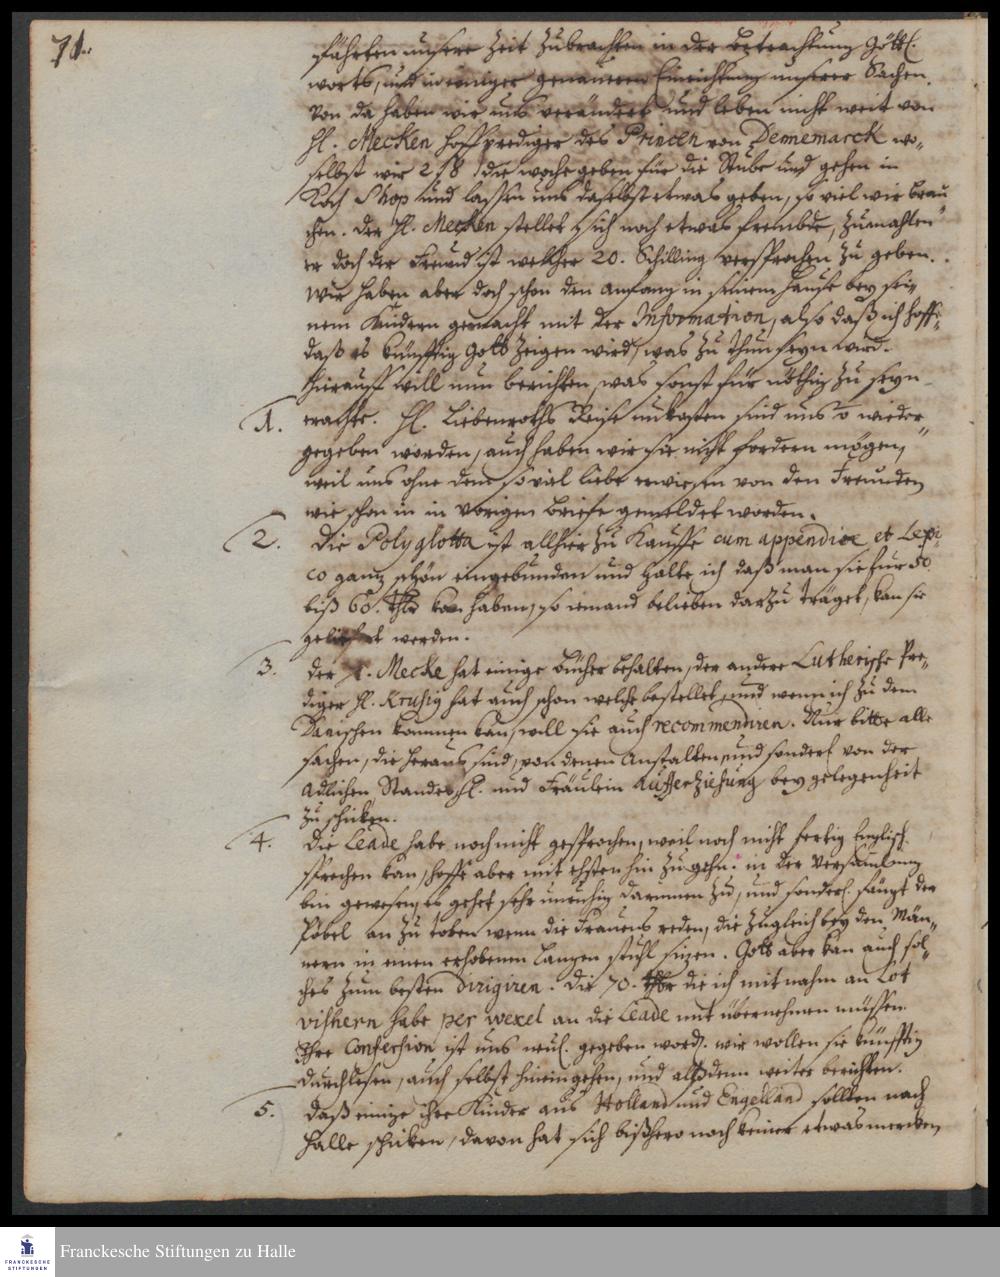 71.
führten unsere Zeit zubrachten in der betrachtung Göttl.
worts, und in einiger genaueren Einrichtung unserer Sachen.
Von da haben wir uns verändert und leben nicht weit von
H. Mecken Hoffprediger des Princen von Dennemarck wo-
selbst wir 2 ß die woche geben für die Stube und gehen in
Koch Shop und lassen uns daselbst etwas geben, so viel wir brau
chen. Der H. Mecken stellet sich noch etwas frembde, zumahlen
er doch der Freund ist welcher 20. Schilling versprochen zu geben.
Wir haben aber doch schon den anfang in seinem Hause bey sei-
nem Kindern gemacht mit der Information, also daß ich hoffe,
daß es künfftig Gott zeigen wird, was zu thun seyn wird.
Hierauff will nun berichten, was sonst für nöthig zu seyn
1. erachte. H. Liebenroths Reise unkosten sind uns o wieder
gegeben worden, auch haben wir sie nicht fordern mögen,
weil uns ohne dem so viel liebe erwiesen von den Freunden
wie schon in in vorigen briefe gemeldet worden.
2. Die Polyglotta ist allhier zu Kauffe cum appendice et Lexi-
co ganz schön eingebunden und halte ich daß man sie fur 50
biß 60. thlr kan haben, so iemand belieben darzu träget, kan sie
geliefert werden.
3. Der H. Mecke hat einige bücher behalten, der andere Lutherische Pre-
diger H. Krusig hat auch schon welche bestellet, und wenn ich zu dem
Dänischen kommen kan, will sie auch recommendiren. Nur bitte alle
sachen, die heraus sind, von denen Anstalten, und sonderl. von der
Adlichen Standes H. und Fräulein Aufferziehung bey gelegenheit
zu schicken.
4. Die Leade habe noch nicht gesprochen, weil noch nicht fertig Englisch
sprechen kan, hoffe aber mit ehsten hin zu gehn. in der Versamlung
bin gewesen, es gehet sehr unruhig darinnen zu, und sonderl. fängt der
Pöbel an zu toben wenn die Frauens reden, die zugleich bey den Män-
nern in einen erhobenen langen stuhl sizen. Gott aber kan auch sol-
ches zum besten dirigiren. Die 70. thlr die ich mit nahm an Lot
vishern habe per wexel an die Leade mit übernehmen müssen.
Ihre Confession ist uns neul. gegeben word. wir wollen sie künfftig
durchlesen, auch selbst hineingehen, und alßdenn weiter berichten.
5. Daß einige ihre Kinder aus Holland und Engelland sollten nach
Halle schicken, davon hat sich bißhero noch keiner etwas mercken
FRANCKESCHE
STIFTUNGEN
Franckesche Stiftungen zu Halle